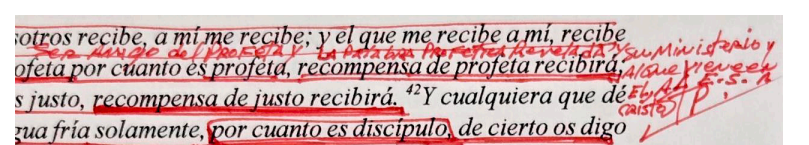 sotros recibe, a mí me recibe; y el que me recibe a mí, recibe
SER AMIGO del PROFETA Y LA PALABRA PROFETICA Revelada Y su Ministerio y
ofeta por cuanto es profeta, recompensa de profeta recibirá,
Al que viene en
s justo, recompensa de justo recibirá. ⁴²Y cualquiera que dé
EL,
(CRISTO) P.
gua fría solamente, por cuanto es discípulo, de cierto os digo